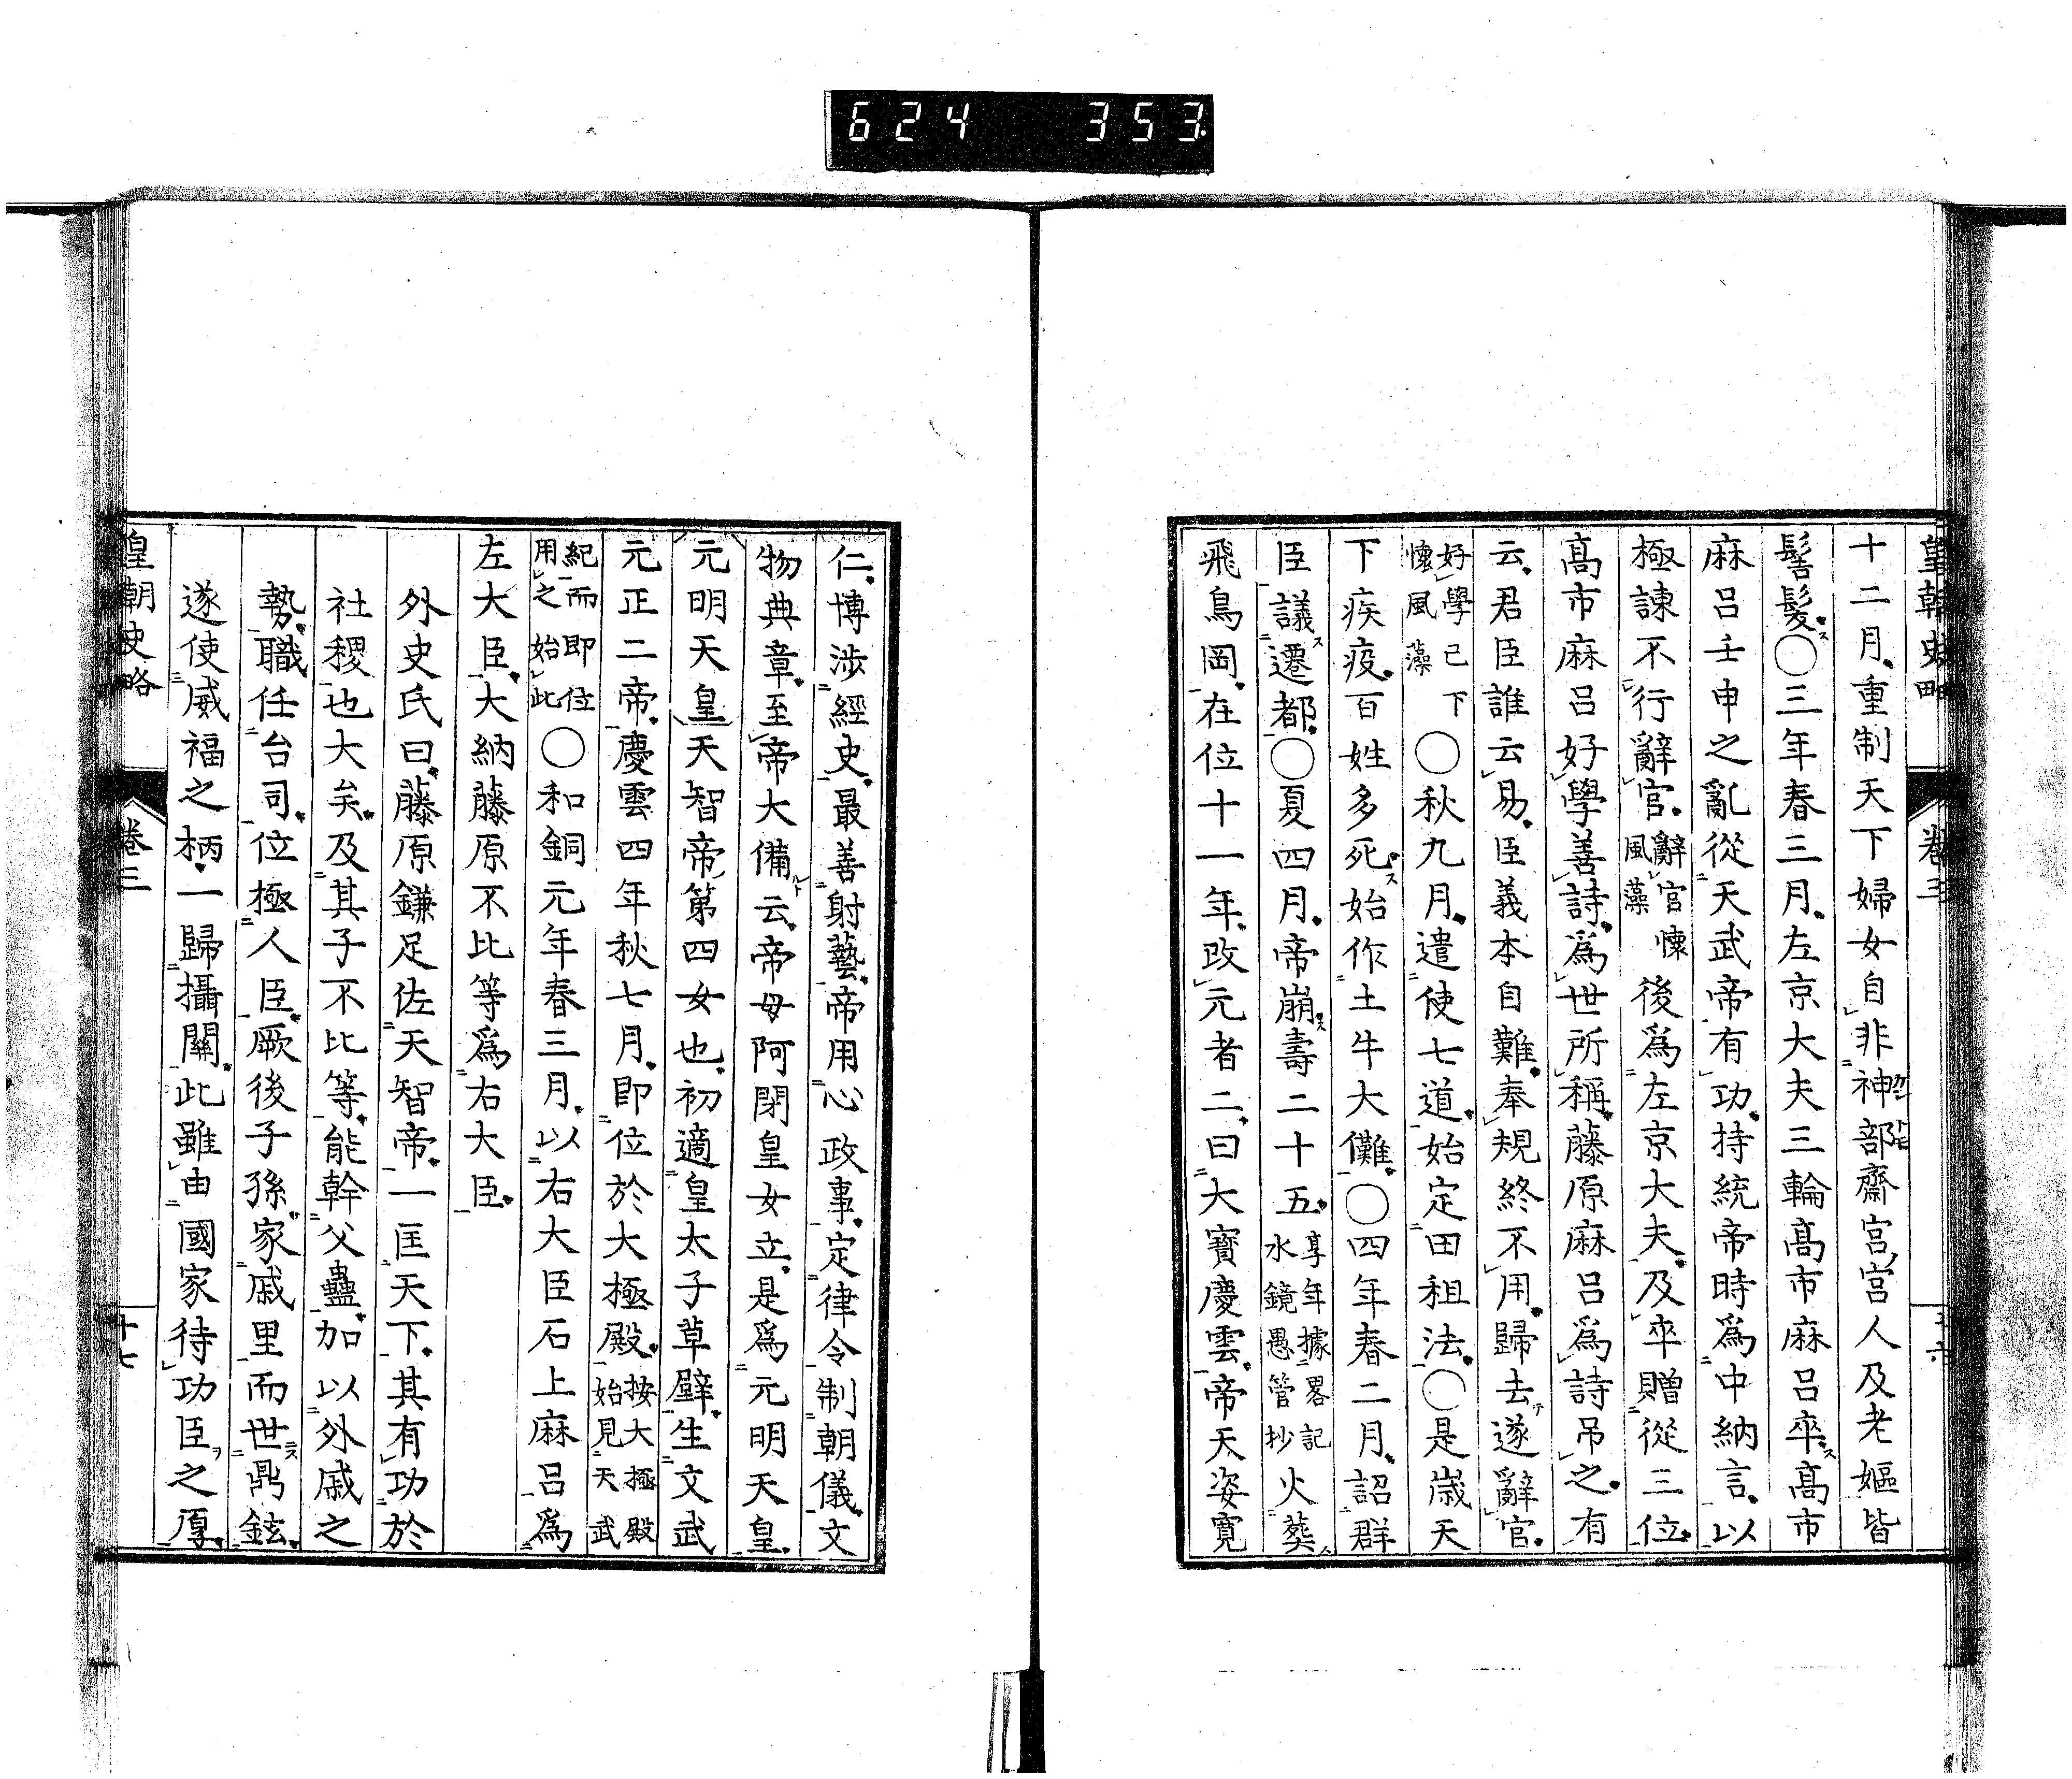 624 353
皇朝史略 卷三
十二月重制天下婦女自非神部齋宮宮人及老嫗皆
髻髮○三年春三月左京大夫三輪高市麻呂卒高市
麻呂壬申之亂從天武帝有功持統帝時爲中納言以
極諫不行辭官辭官懷風藻後爲左京大夫及卒贈從三位
高市麻呂好學善詩爲世所稱藤原麻呂爲詩吊之有
云君臣誰云易臣義本自難奉規終不用歸去遂辭官
好學已下懷風藻○秋九月遣使七道始定田租法○是歲天
下疾疫百姓多死始作土牛大儺○四年春二月詔群
臣議遷都○夏四月帝崩壽二十五享年據畧記水鏡愚管抄火葬
飛鳥岡在位十一年改元者二曰大寶慶雲帝天姿寬
仁博涉經史最善射藝帝用心政事定律令制朝儀文
物典章至帝大備云帝母阿閇皇女立是爲元明天皇
元明天皇天智帝第四女也初適皇太子草壁生文武
元正二帝慶雲四年秋七月即位於大極殿按大極殿始見天武
紀而即位用之始此○和銅元年春三月以右大臣石上麻呂爲
左大臣大納藤原不比等爲右大臣
外史氏曰藤原鎌足佐天智帝一匡天下其有功於
社稷也大矣及其子不比等能幹父蠱加以外戚之
勢職任台司位極人臣厥後子孫家戚里而世鼎鉉
遂使威福之柄一歸攝關此雖由國家待功臣之厚
皇朝史略 卷三 十七